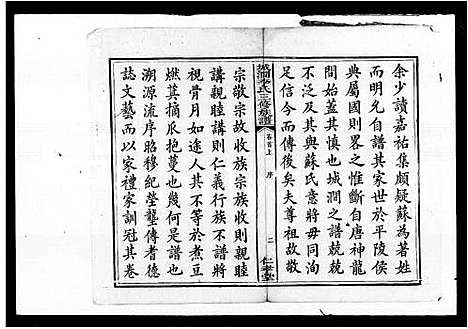 余少讀嘉祐集頗疑蘇為著姓
而明允自譜其家世於平陵侯
典屬國則畧之惟斷自唐神龍
間始蓋其慎也城澗之譜兢兢
不泛及其與蘇氏意將毋同洵
足信今而傳後矣夫尊祖故敬
城澗李氏三修族譜
卷首上 序
二 仁孝堂
宗敬宗故收族宗族收則親睦
講親睦講則仁義行族不譜將
視骨月如塗人其不等於煮豆
燃萁摘瓜抱蔓也幾何是譜其
溯源流序昭穆紀塋壟傳耆德
誌文藝而以家禮家訓冠其卷